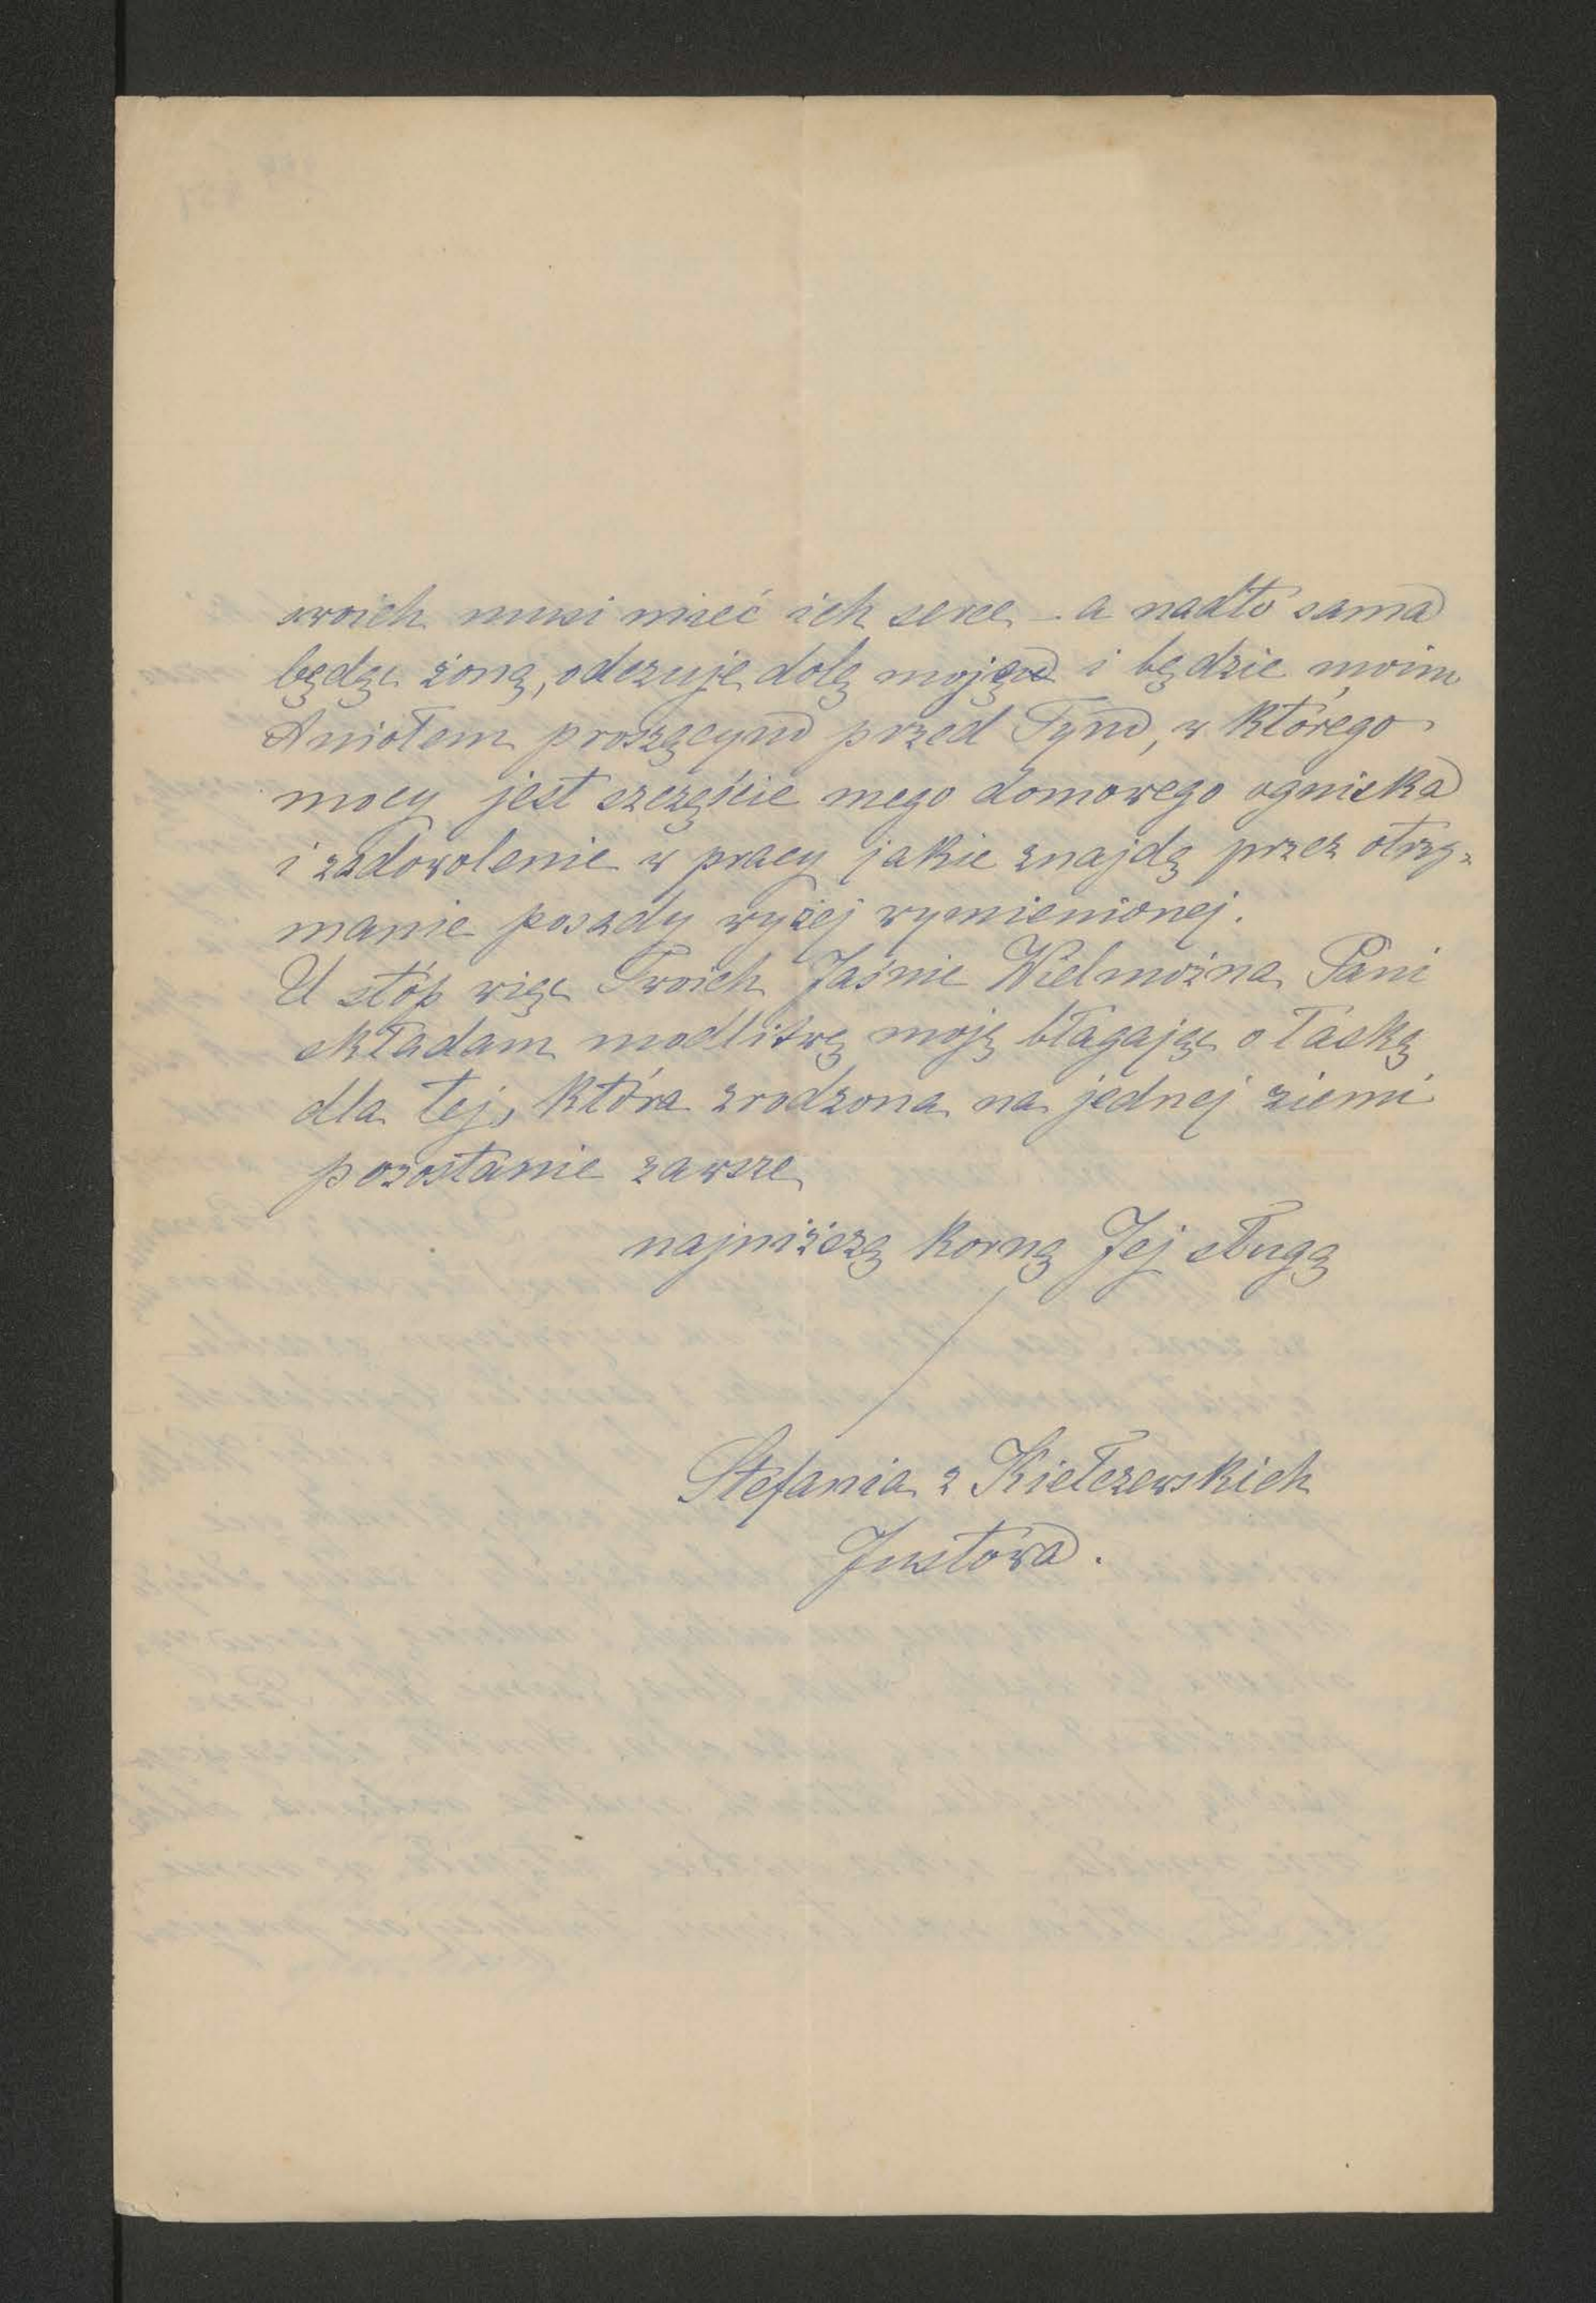 swoich musi mieć ich serce – a nadto sama
będąc żoną, odczuje dolę moją i będzie moim
Aniołem proszącym przed Tym, w którego
mocy jest szczęście mego domowego ogniska
i zadowolenie w pracy jakie znajdę przez otrzy=
manie posady wyżej wymienionej.
U stóp więc Twoich Jaśnie Wielmożna Pani
składam modlitwę moją błagając o łaskę
dla tej, która zrodzona na jednej ziemi
pozostanie zawsze
najniższą korną Jej sługą
Stefania z Kiełczewskich
Justowa.